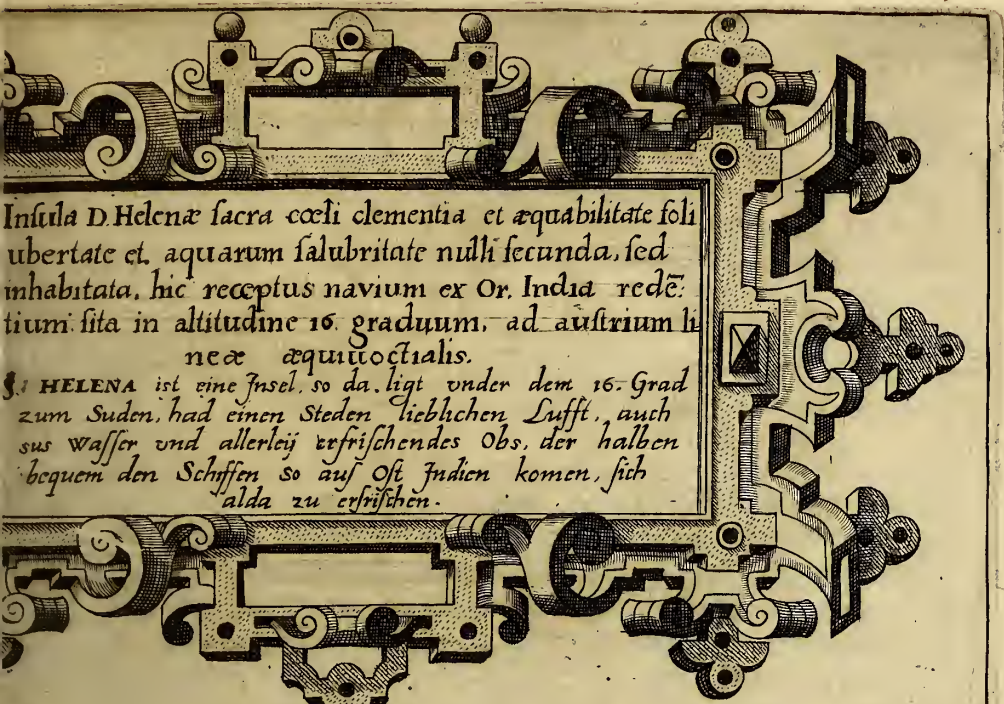 Insula D. Helenæ sacra cœli clementia et æquabilitate soli
ubertate et. aquarum salubritate nulli secunda, sed
inhabitata, hic receptus navium ex Or. India redē:
tium: sita in altitudine 16. graduum, ad austrium li
neæ æquinoctialis.
S. HELENA ist eine Insel, so da. ligt vnder dem 16. Grad
zum Suden, had einen Steden lieblichen Lufft, auch
sus Wasser vnd allerleÿ erfrischendes Obs, der halben
bequem den Schiffen so aus Ost Indien komen, sich
alda zu erfrischen.